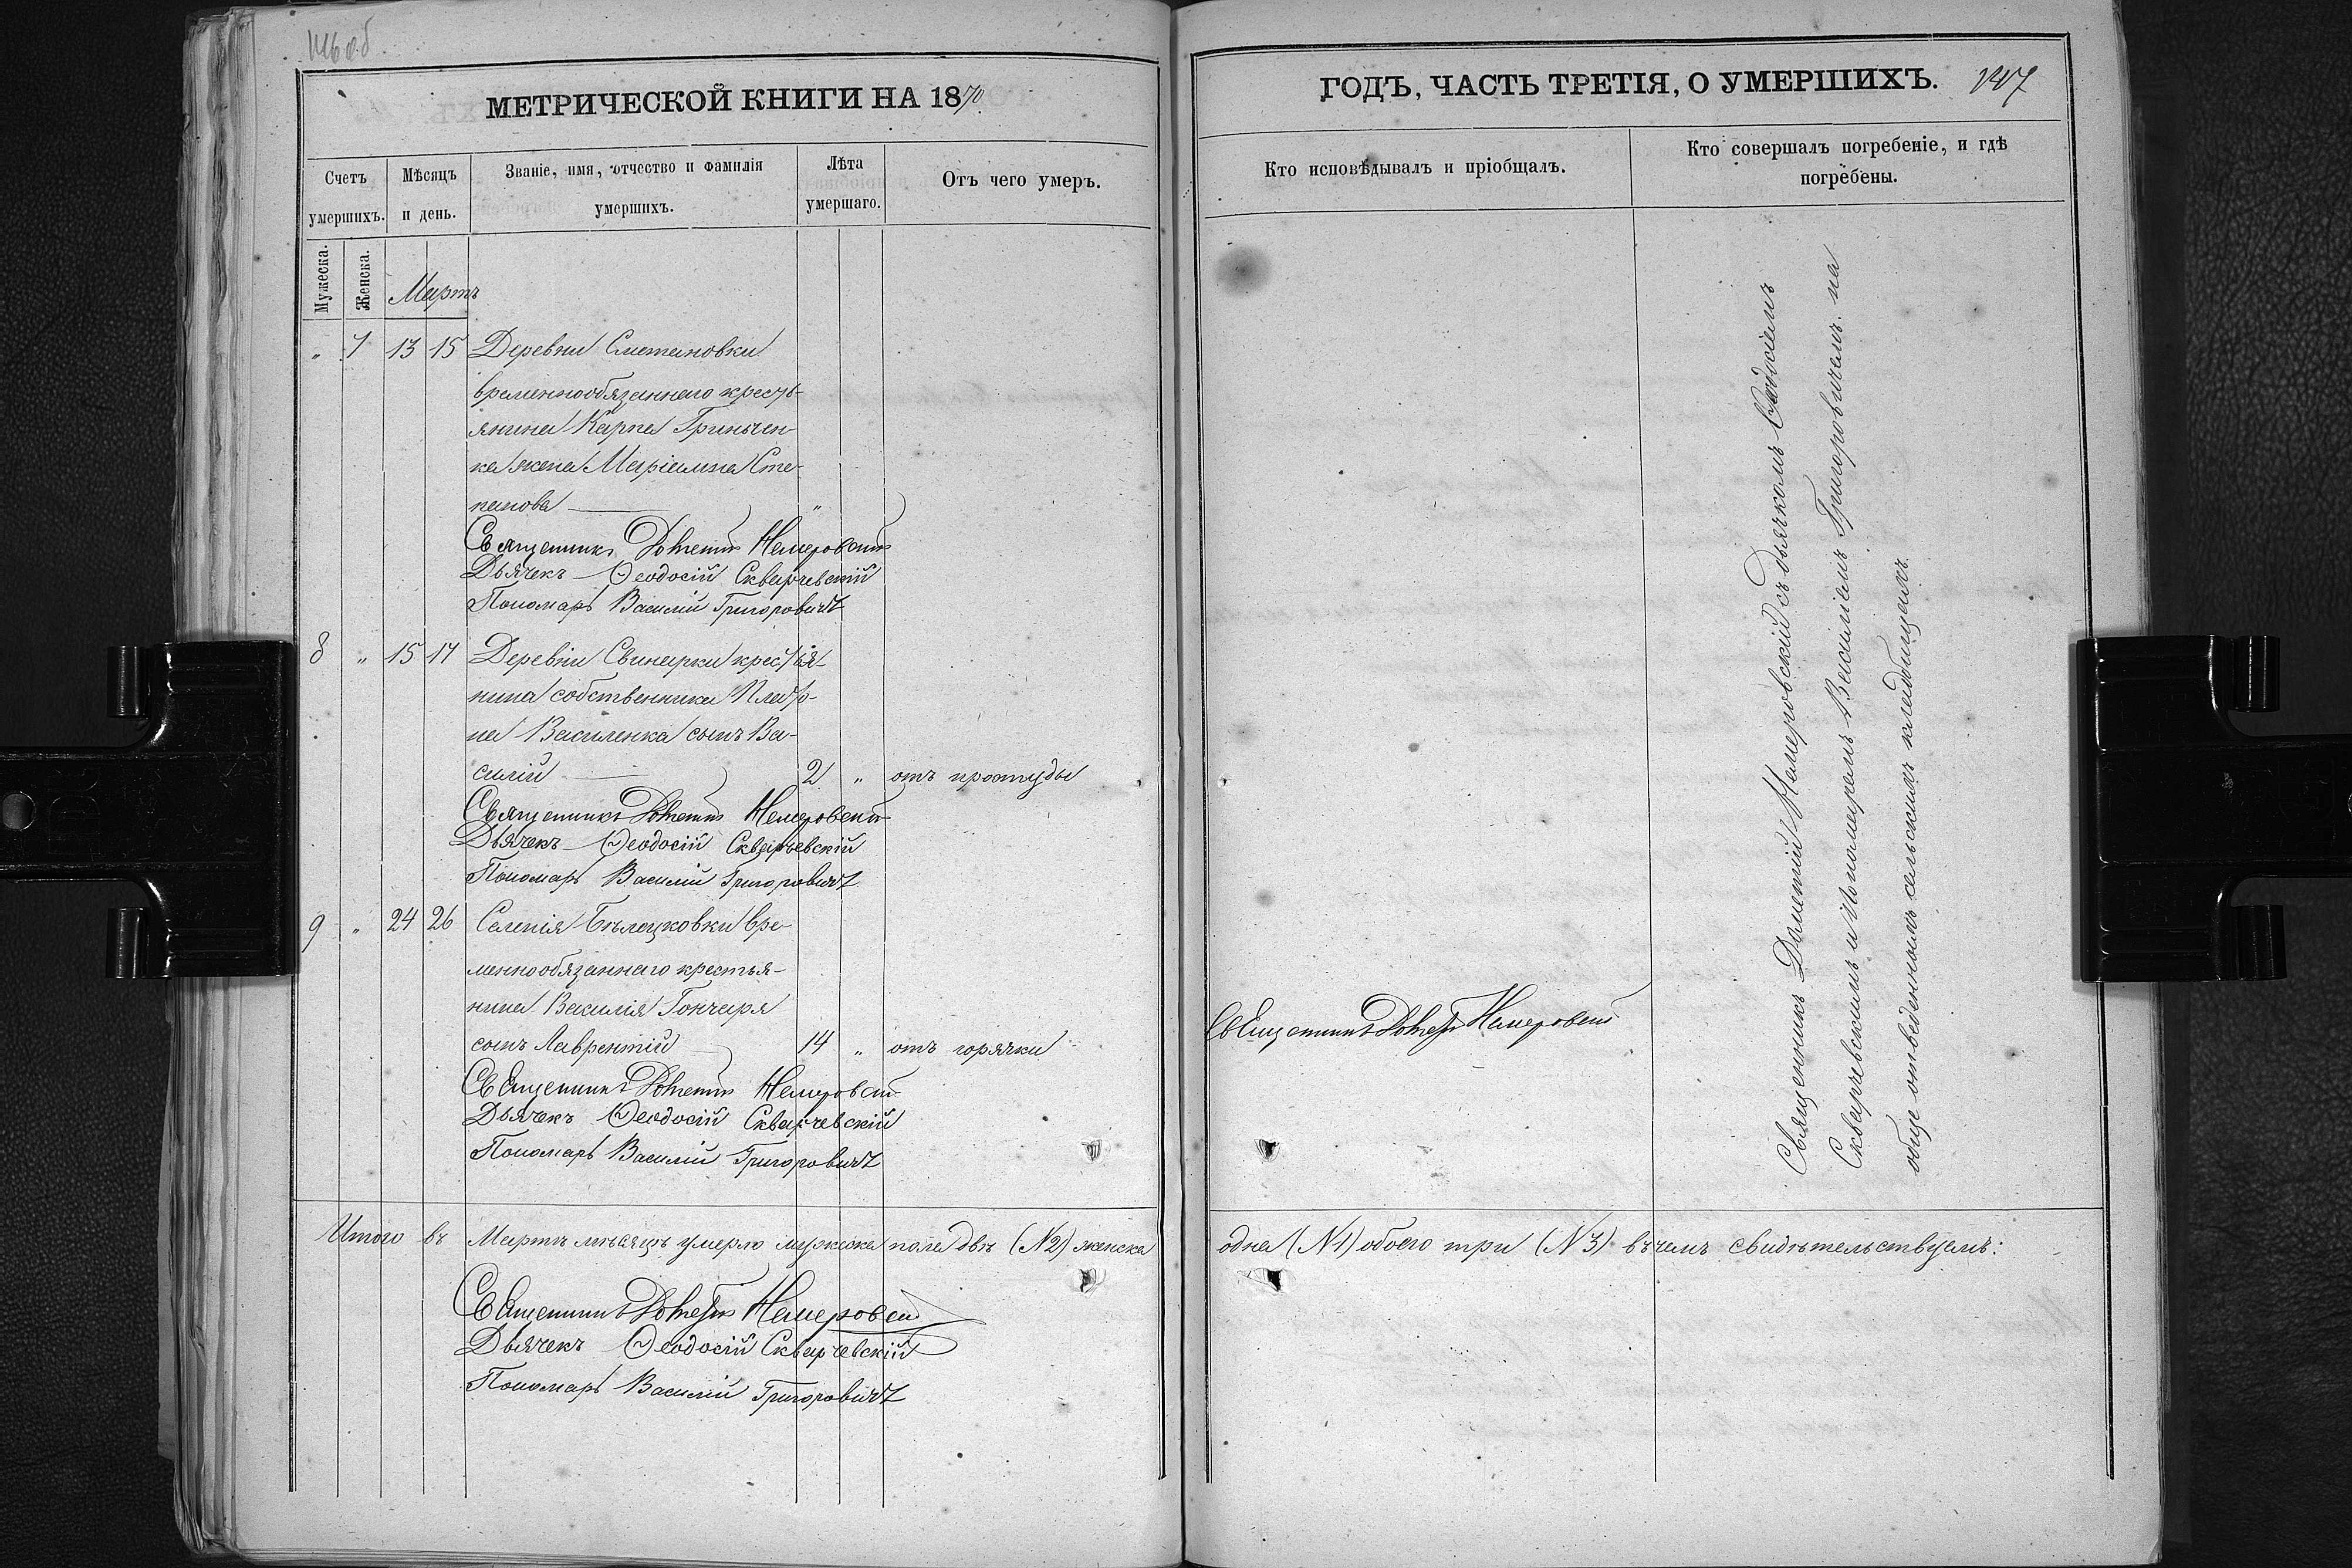 МЕТРИЧЕСКОЙ КНИГИ НА 1870
Счетъ умершихъ.
Мѣсяцъ и день.
Званіе, имя, отчество и фамилія умершихъ.
Лѣта умершаго.
Отъ чего умеръ.
Мужеска.
Женска.
Мартъ
„ 7 13 15 Деревни Сметановки
временнообязаннаго кресть-
янина Карпа Гринчен-
ка жена Маріамна Сте-
панова — „
Священникъ Дометій Немеровскій
Дьячекъ Ѳеодосій Скварчевскій
Пономарь Василій Григоровичъ
8 „ 15 17 Деревни Свинарки крестья-
нина собственника Плато-
на Василенка сынъ Ва-
силій — 2 „ отъ простуды
Священникъ Дометій Немеровскій
Дьячекъ Ѳеодосій Скварчевскій
Пономарь Василій Григоровичъ
9 „ 24 26 Селенія Бѣлецковки вре-
меннообязаннаго крестья-
нина Василія Гончара
сынъ Лаврентій — 14 „ отъ горячки
Священникъ Дометій Немеровскій
Дьячекъ Ѳеодосій Скварчевскій
Пономарь Василій Григоровичъ
Итого въ Мартѣ мѣсяцѣ умерло мужеска пола двѣ (№2) женска
Священникъ Дометій Немеровскій
Дьячекъ Ѳеодосій Скварчевскій
Пономарь Василій Григоровичъ
ГОДЪ, ЧАСТЬ ТРЕТІЯ, О УМЕРШИХЪ. 147
Кто исповѣдывалъ и пріобщалъ.
Кто совершалъ погребеніе, и гдѣ погребены.
Священникъ Дометій Немеровскій
Священникъ Дометій Немеровскій съ дьячкомъ Ѳеодосіемъ
Скварчевскимъ и Пономаремъ Василіемъ Григоровичемъ на
обще отведенномъ сельскомъ кладбищахъ.
одна (№1) обоего три (№3) въ чемъ свидѣтельствуемъ: